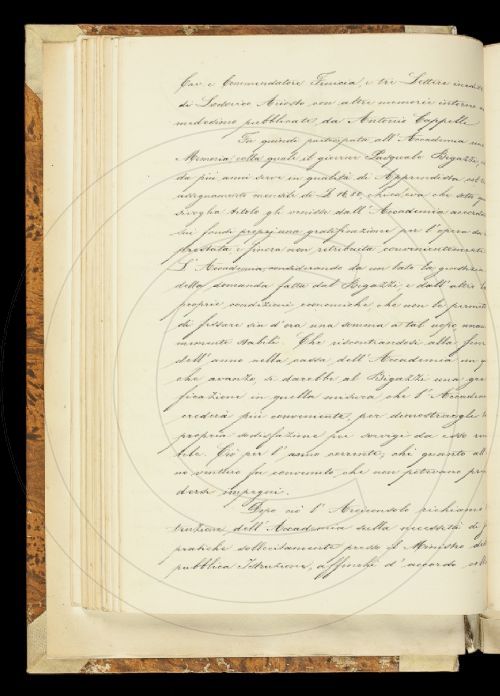 Cav. e Commendatore Fenicia, e tre Lettere inedite
di Lodovico Ariosto con altre memorie intorno al
medesimo pubblicate da Antonio Cappelli.
Fu quindi partecipata all'Accademia una
Memoria colla quale il giovine Pasquale Bigazzi,
da più anni serve in qualità di Apprendista col
assegnamento mensile di £ 16.80, chiedeva che sotto qua
sivoglia titolo gli venisse dall'Accademia accordata
sui fondi proprj una gratificazione per l'opera da
prestata e finora non retribuita convenientemente.
L'Accademia, considerando da un lato la giustizia
della domanda fatta dal Bigazzi, e dall'altro le
proprie condizioni economiche, che non le permettono
di fissare sin d'ora una somma a tal uopo, unani
mamente stabilì: Che riscontrandosi alla fine
dell'anno nella cassa dell'Accademia un
che avanzo, si darebbe al Bigazzi una grati
ficazione in quella misura che l'Accademia
crederà più conveniente, per dimostrargli la
propria sodisfazione pei servigi da esso
Ciò per l'anno corrente; chè quanto all'
venture fu convenuto, che non potevano pren
dersi impegni.
Dopo ciò l'Arciconsolo richiamò l'
tenzione dell'Accademia sulla necessità di
pratiche sollecitamente presso il Ministro della
pubblica Istruzione, affinchè d'accordo